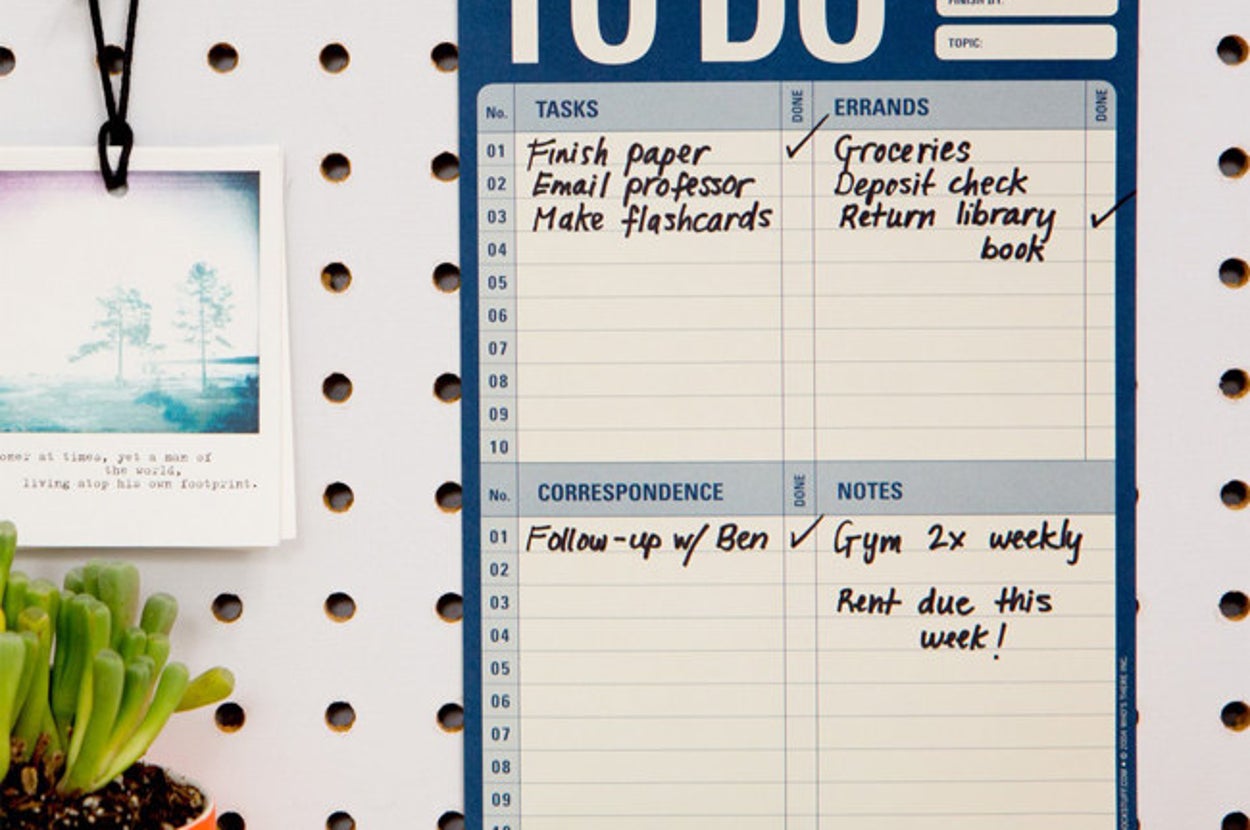 TO DO
TOPIC:
No. TASKS DONE ERRANDS DONE
01 Finish paper ✓ Groceries
02 Email professor Deposit check
03 Make flashcards Return library ✓
04 book
05
06
07
08
09
10
No. CORRESPONDENCE DONE NOTES
01 Follow-up w/ Ben ✓ Gym 2x weekly
02
03 Rent due this
04 week!
05
06
07
08
09
at times, yet a man of
the world,
living atop his own footprint.
© 2004 WHO'S THERE INC.